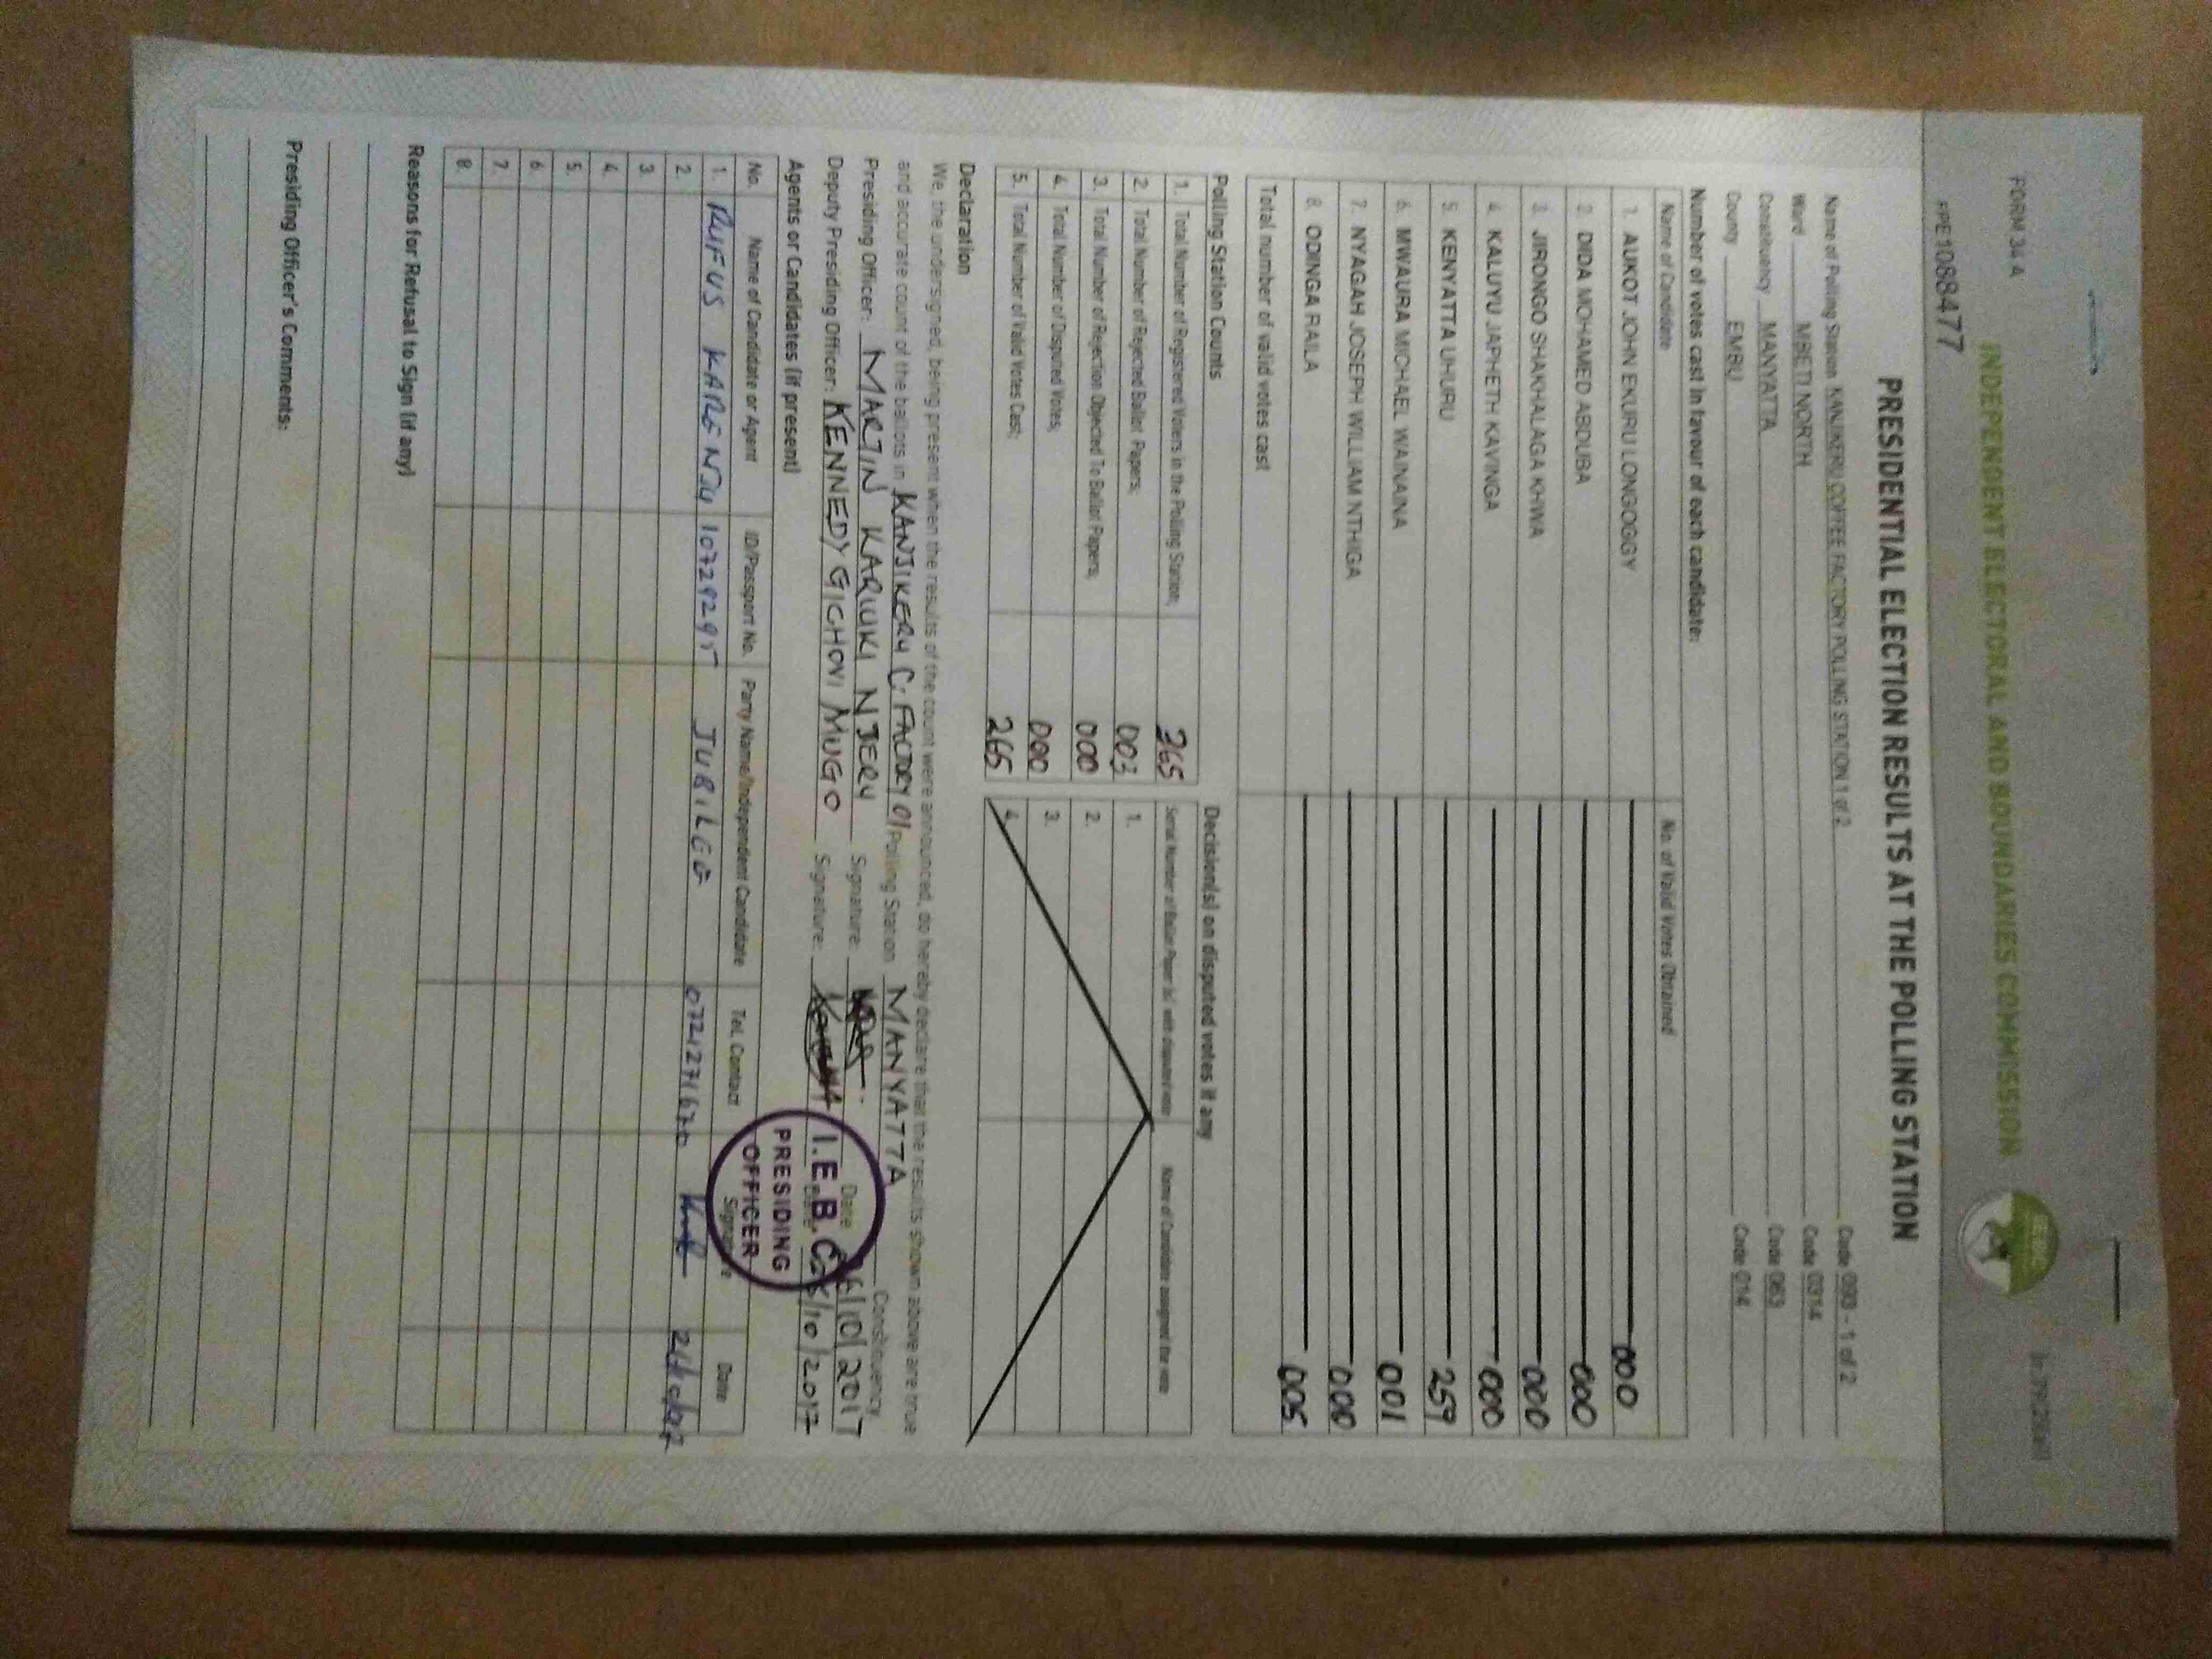 FORM 34 A
INDEPENDENT ELECTORAL AND BOUNDARIES COMMISSION
IEBC
FPE1088477
PRESIDENTIAL ELECTION RESULTS AT THE POLLING STATION
Name of Polling Station KANJIKERU COFFEE FACTORY POLLING STATION 1 of 2 Code 093 - 1 of 2
Ward MBETI NORTH Code 0314
Constituency MANYATTA Code 063
County EMBU Code 014
Number of votes cast in favour of each candidate:
Name of Candidate No. of Valid Votes Obtained
1. AUKOT JOHN EKURU LONGOGGY 000
2. DIDA MOHAMED ABDUBA 000
3. JIRONGO SHAKHALAGA KHWA 000
4. KALUYU JAPHETH KAVINGA 000
5. KENYATTA UHURU 259
6. MWAURA MICHAEL WAINAINA 001
7. NYAGAH JOSEPH WILLIAM NTHIGA 000
8. ODINGA RAILA 005
Total number of valid votes cast
Polling Station Counts
1. Total Number of Registered Voters in the Polling Station; 365
2. Total Number of Rejected Ballot Papers; 003
3. Total Number of Rejection Objected To Ballot Papers; 000
4. Total Number of Disputed Votes; 000
5. Total Number of Valid Votes Cast; 265
Decision(s) on disputed votes if any
Serial Number of Ballot Paper (s) with disputed vote Name of Candidate assigned the vote
1.
2.
3.
4.
Declaration
We, the undersigned, being present when the results of the count were announced, do hereby declare that the results shown above are true
and accurate count of the ballots in KANJIKERU C. FACTORY 01 Polling Station MANYATTA Constituency
Presiding Officer: MARTIN KARIUKI NJERU Signature: Date 26/10/2017
Deputy Presiding Officer: KENNEDY GICHOVI MUGO Signature: Date 26/10/2017
I.E.B.C.
PRESIDING
OFFICER
Agents or Candidates (if present)
No. Name of Candidate or Agent ID/Passport No. Party Name/Independent Candidate Tel. Contact Signature Date
1. RUFUS KARENJU 10729295 JUBILEE
2.
3.
4.
5.
6.
7.
8.
Reasons for Refusal to Sign (if any)
Presiding Officer's Comments: